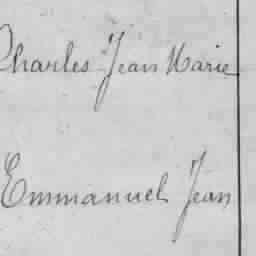 Charles Jean Marie
Emmanuel Jean